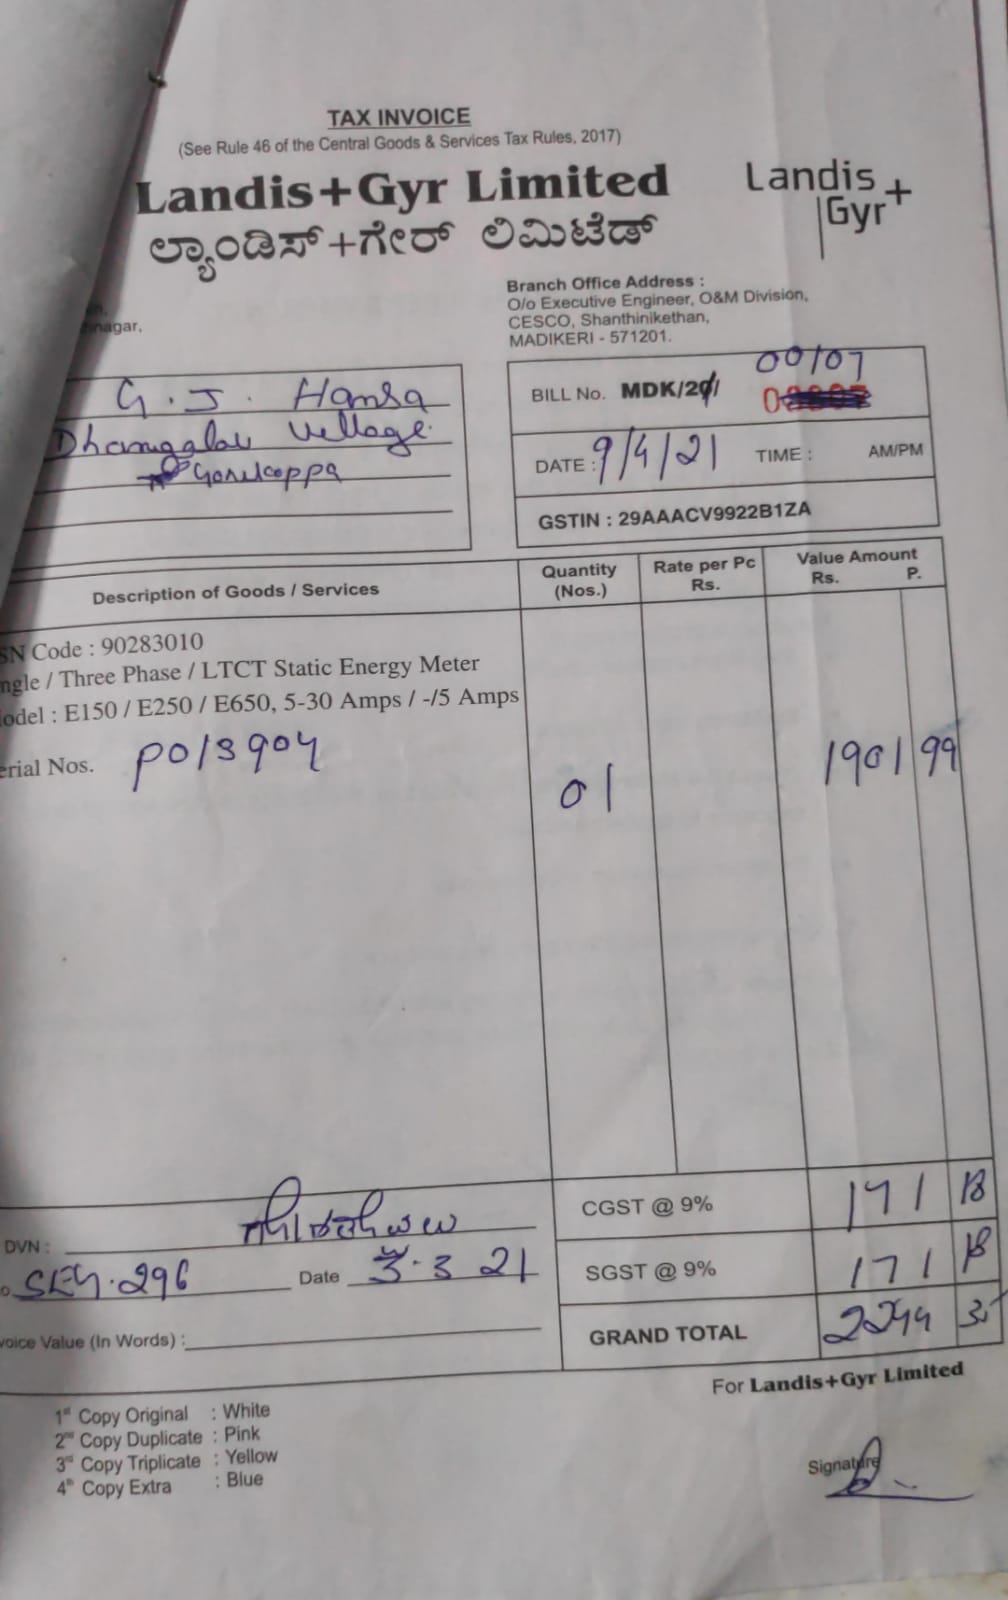 TAX INVOICE
(See Rule 46 of the Central Goods & Services Tax Rules, 2017)
Landis+Gyr Limited
ಲ್ಯಾಂಡಿಸ್+ಗೇರ್ ಲಿಮಿಟೆಡ್
Landis
Gyr+
Branch Office Address :
O/o Executive Engineer, O&M Division,
CESCO, Shanthinikethan,
MADIKERI - 571201.
nagar,
G. J. Hansa
Village
BILL No. MDK/2 / 00/07
DATE : 9/4/21 TIME : AM/PM
GSTIN : 29AAACV9922B1ZA
Description of Goods / Services
Quantity
(Nos.)
Rate per Pc
Rs.
Value Amount
Rs. P.
SN Code : 90283010
ngle / Three Phase / LTCT Static Energy Meter
odel : E150 / E250 / E650, 5-30 Amps / -/5 Amps
erial Nos. P013904
01
1901 99
CGST @ 9% 171 18
SGST @ 9% 171 18
GRAND TOTAL 2244 35
DVN :
296 Date 3.3 21
voice Value (In Words) :
For Landis+Gyr Limited
1st Copy Original : White
2nd Copy Duplicate : Pink
3rd Copy Triplicate : Yellow
4th Copy Extra : Blue
Signature